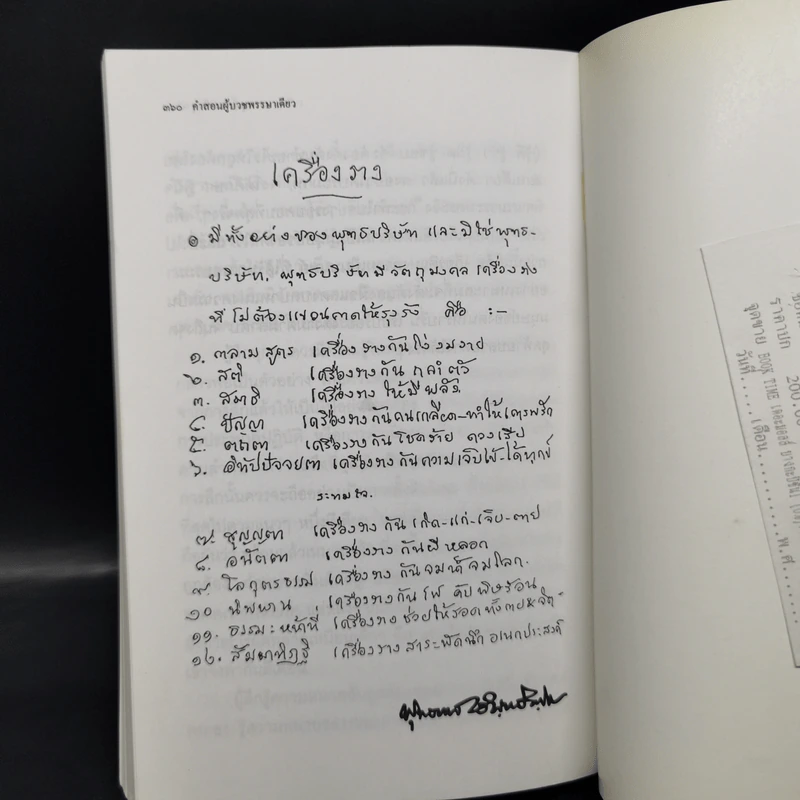 ๓๖๐ คำสอนผู้บวชพรรษาเดียว
เครื่องราง
๑ มีทั้งอย่างของพุทธบริษัท และมิใช่พุทธ-
บริษัท. พุทธบริษัทมีวัตถุมงคล เครื่องราง
ที่ไม่ต้องแขวนคาดให้รุงรัง คือ :-
๑. กลามสูตร เครื่องรางกันโง่ งมงาย
๒. สติ เครื่องรางกัน
๓. สมาธิ เครื่องรางให้มีพลัง
๔. ปัญญา เครื่องรางกันคนเกลียด-ทำให้เคารพรัก
๕. ตถตา เครื่องรางกันโชคร้าย ดวงเสีย
๖. อิทัปปัจจยตา เครื่องรางกันความเจ็บไข้-ได้ทุกข์
ระทมใจ.
๗. สุญญตา เครื่องรางกันเกิด-แก่-เจ็บ-ตาย
๘. อนัตตา เครื่องรางกันผีหลอก
๙. โลกุตรธรรม เครื่องรางกันจมน้ำจมโลก.
๑๐ นิพพาน เครื่องรางกันไฟ ดับพิษร้อน
๑๑. ธรรมะหน้าที่ เครื่องรางช่วยให้รอดทั้งกาย&จิต
๑๒. สัมมาทิฏฐิ เครื่องรางสาระพัดนึก อเนกประสงค์
พุทธทาส อินฺทปญฺโญ
ราคาปก 200.00
จุดขาย BOOK TIME
วันที่.....เดือน..........พ.ศ.......